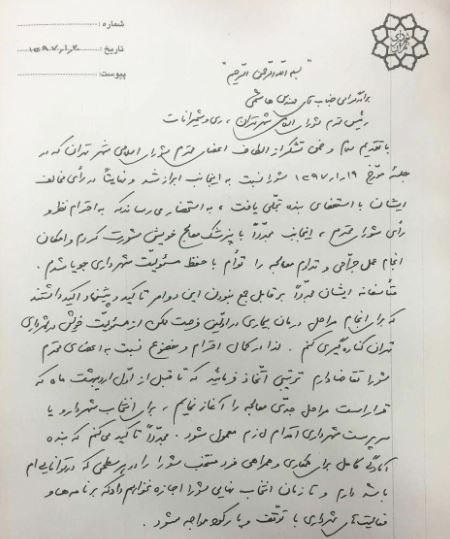 شماره:
تاریخ: ۱۳۹۷
پیوست:
بسم الله الرحمن الرحیم
برادر گرامی جناب آقای مهندس هاشمی
رئیس محترم شورای اسلامی شهر تهران، ری و شمیرانات
با تقدیم سلام و ضمن تشکر از الطاف اعضای محترم شورای اسلامی شهر تهران که در
جلسهٔ مورّخ ۱۹/۱/۱۳۹۷ شورا نسبت به اینجانب ابراز شد و نهایتاً در رأی مخالف
ایشان با استعفای بنده تجلّی یافت، به استحضار می رساند که به احترام نظر و
رأی شورای محترم، اینجانب مجدّداً با پزشک معالج خویش مشورت کردم و امکان
انجام عمل جراحی و تداوم معالجه را توأم با حفظ مسئولیّت شهرداری جویا شدم.
متأسفانه ایشان مجدّداً بر قابل جمع نبودن این دو امر تأکید و پیشنهاد اکید داشتند
که برای انجام مراحل درمان بیماری در اولین فرصت ممکن از مسئولیّت خویش در شهرداری
تهران کناره گیری کنم. لذا در کمال احترام و خضوع نسبت به اعضای محترم
شورا تقاضا دارم ترتیبی اتّخاذ فرمائید که تا قبل از اوّل اردیبهشت ماه که
قرار است مراحل جدّی معالجه را آغاز نمایم، برای انتخاب شهردار و یا
سرپرست شهرداری اقدام لازم معمول شود. مجدّداً تأکید می کنم که بنده
آمادگی کامل برای همکاری و همراهی فرد منتخب شورا را در هر سطحی که در توانایی ام
باشد دارم و تا زمان انتخاب نهایی شورا اجازه نخواهم داد که برنامه ها و
فعالیت های شهرداری با توقّف و یا رکود مواجه شود.